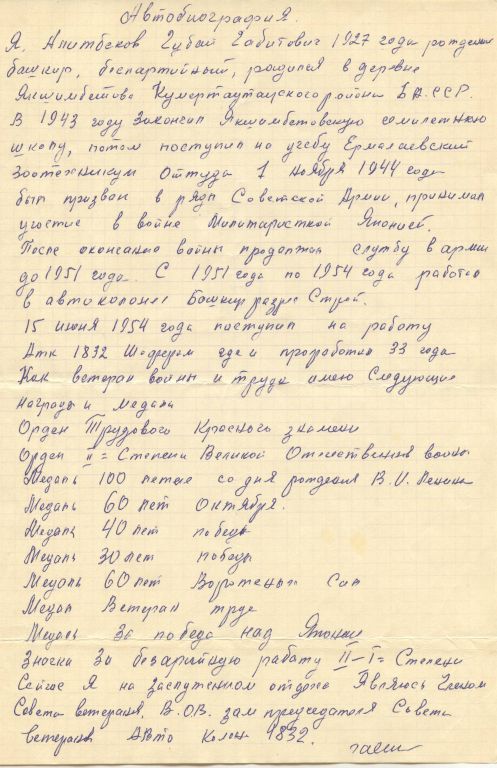 Автобиография.
Я, Апитбеков Губай Габитович 1927 года рождения
башкир, беспартийный, родился в деревне
Якшимбетово Куюргазинского района БАССР.
В 1943 году закончил Якшимбетовскую семилетнюю
школу, потом поступил на учебу Ермолаевский
Зоотехникум Оттуда 7 ноября 1944 года
был призван в ряды Советской Армии, принимал
участие в войне Милитаристкой Японией.
После окончание войны продолжил службу в армии
до 1951 года. С 1951 года по 1954 года работал
в автоколоне Башкир разрез Строй.
15 июня 1954 года поступил на работу
Атк 1832 Шофером где и проработал 33 года
Как ветеран войны и труда имею следующие
награды и медали
Орден Трудового Красного знамени
Орден II= Степени Великой Отечественной войны
Медаль 100 летие со дня рождения В.И. Ленина
Медаль 60 лет Октября.
Медаль 40 лет победы
Медаль 30 лет победы
Медаль 60 лет Воруженых Сил
Медал Ветеран труда
Медаль За победа над Японии
Значки За безаварийную работу II-I= Степени
Сейчас Я на заслуженном отдыхе Являюсь членом
Совета ветеранв, В.О.В. зам председателя Совета
ветеранв Авто Колон 1832.